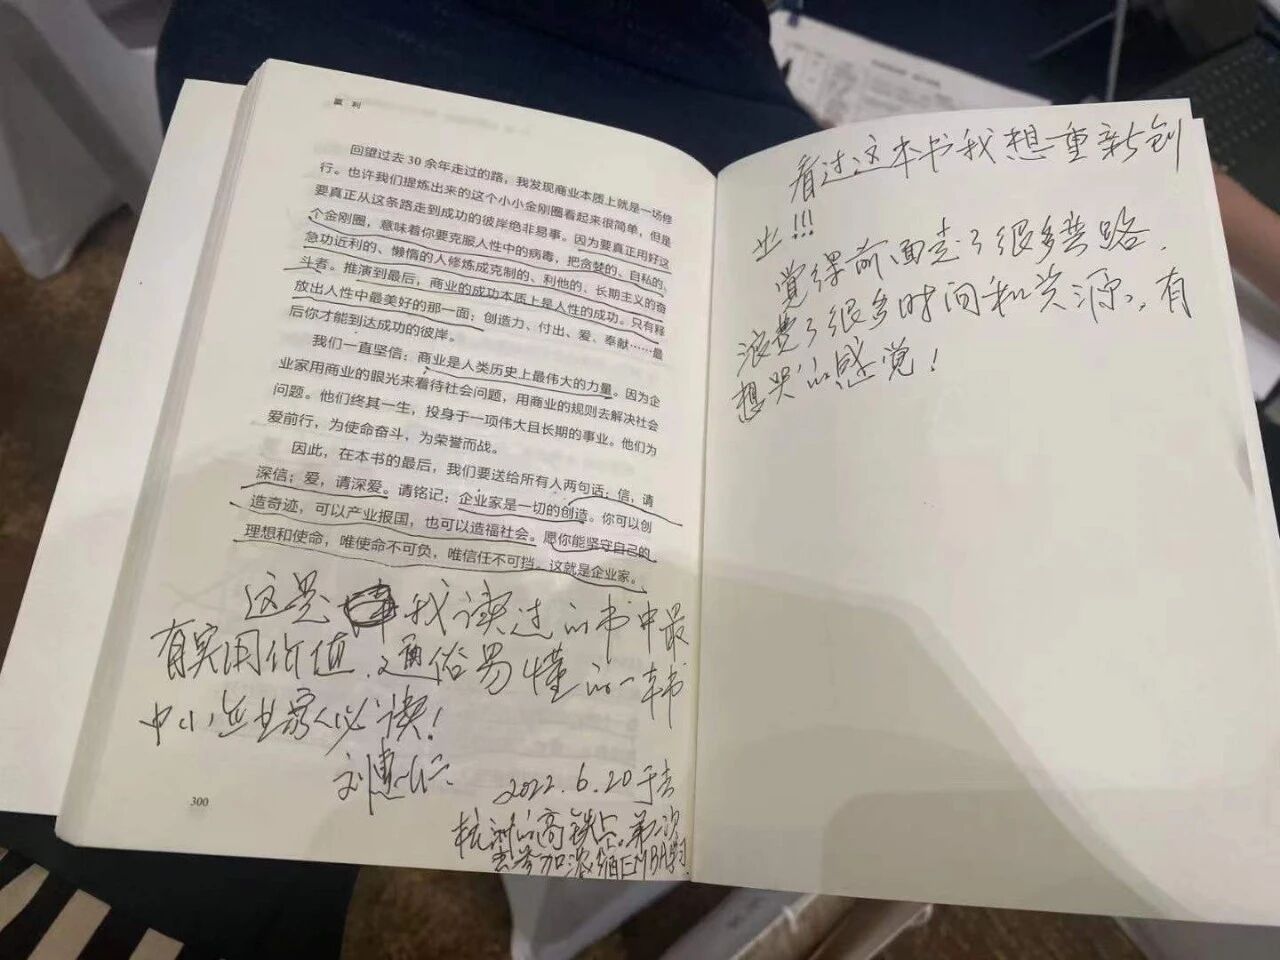 赢 利
回望过去 30 余年走过的路，我发现商业本质上就是一场修
行。也许我们提炼出来的这个小小金刚圈看起来很简单，但是
要真正从这条路走到成功的彼岸绝非易事。因为要真正用好这
个金刚圈，意味着你要克服人性中的病毒，把贪婪的、自私的、
急功近利的、懒惰的人修炼成克制的、利他的、长期主义的奋
斗者。推演到最后，商业的成功本质上是人性的成功。只有释
放出人性中最美好的那一面：创造力、付出、爱、奉献……最
后你才能到达成功的彼岸。
我们一直坚信：商业是人类历史上最伟大的力量。因为企
业家用商业的眼光来看待社会问题，用商业的规则去解决社会
问题。他们终其一生，投身于一项伟大且长期的事业。他们为
爱前行，为使命奋斗，为荣誉而战。
因此，在本书的最后，我们要送给所有人两句话：信，请
深信；爱，请深爱。请铭记：企业家是一切的创造。你可以创
造奇迹，可以产业报国，也可以造福社会。愿你能坚守自己的
理想和使命，唯使命不可负，唯信任不可挡。这就是企业家。
这是我读过的书中最
有实用价值、通俗易懂的一本书
中小企业家必读！
刘
2022.6.20于去
杭州的高铁上。第二次
去参加浓缩EMBA学习
300
看过这本书我想重新创
业!!!
觉得前面走了很多弯路，
浪费了很多时间和资源，有
想哭的感觉！